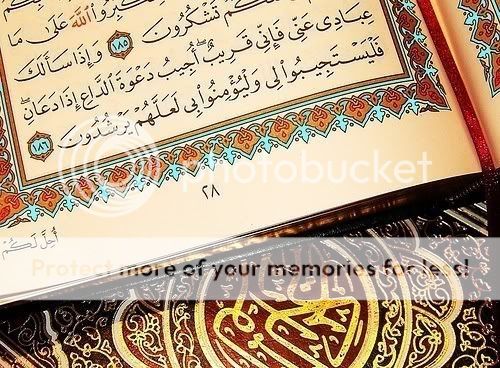 الله عَلَىٰ مَا
تَشْكُرُونَ ١٨٥ وَإِذَا سَأَلَكَ
عِبَادِي عَنِّي فَإِنِّي قَرِيبٌ أُجِيبُ دَعْوَةَ الدَّاعِ إِذَا دَعَانِ
فَلْيَسْتَجِيبُوا لِي وَلْيُؤْمِنُوا بِي لَعَلَّهُمْ يَرْشُدُونَ ١٨٦
٢٨
أُحِلَّ لَكُمْ
photobucket
Protect more of your memories for less!